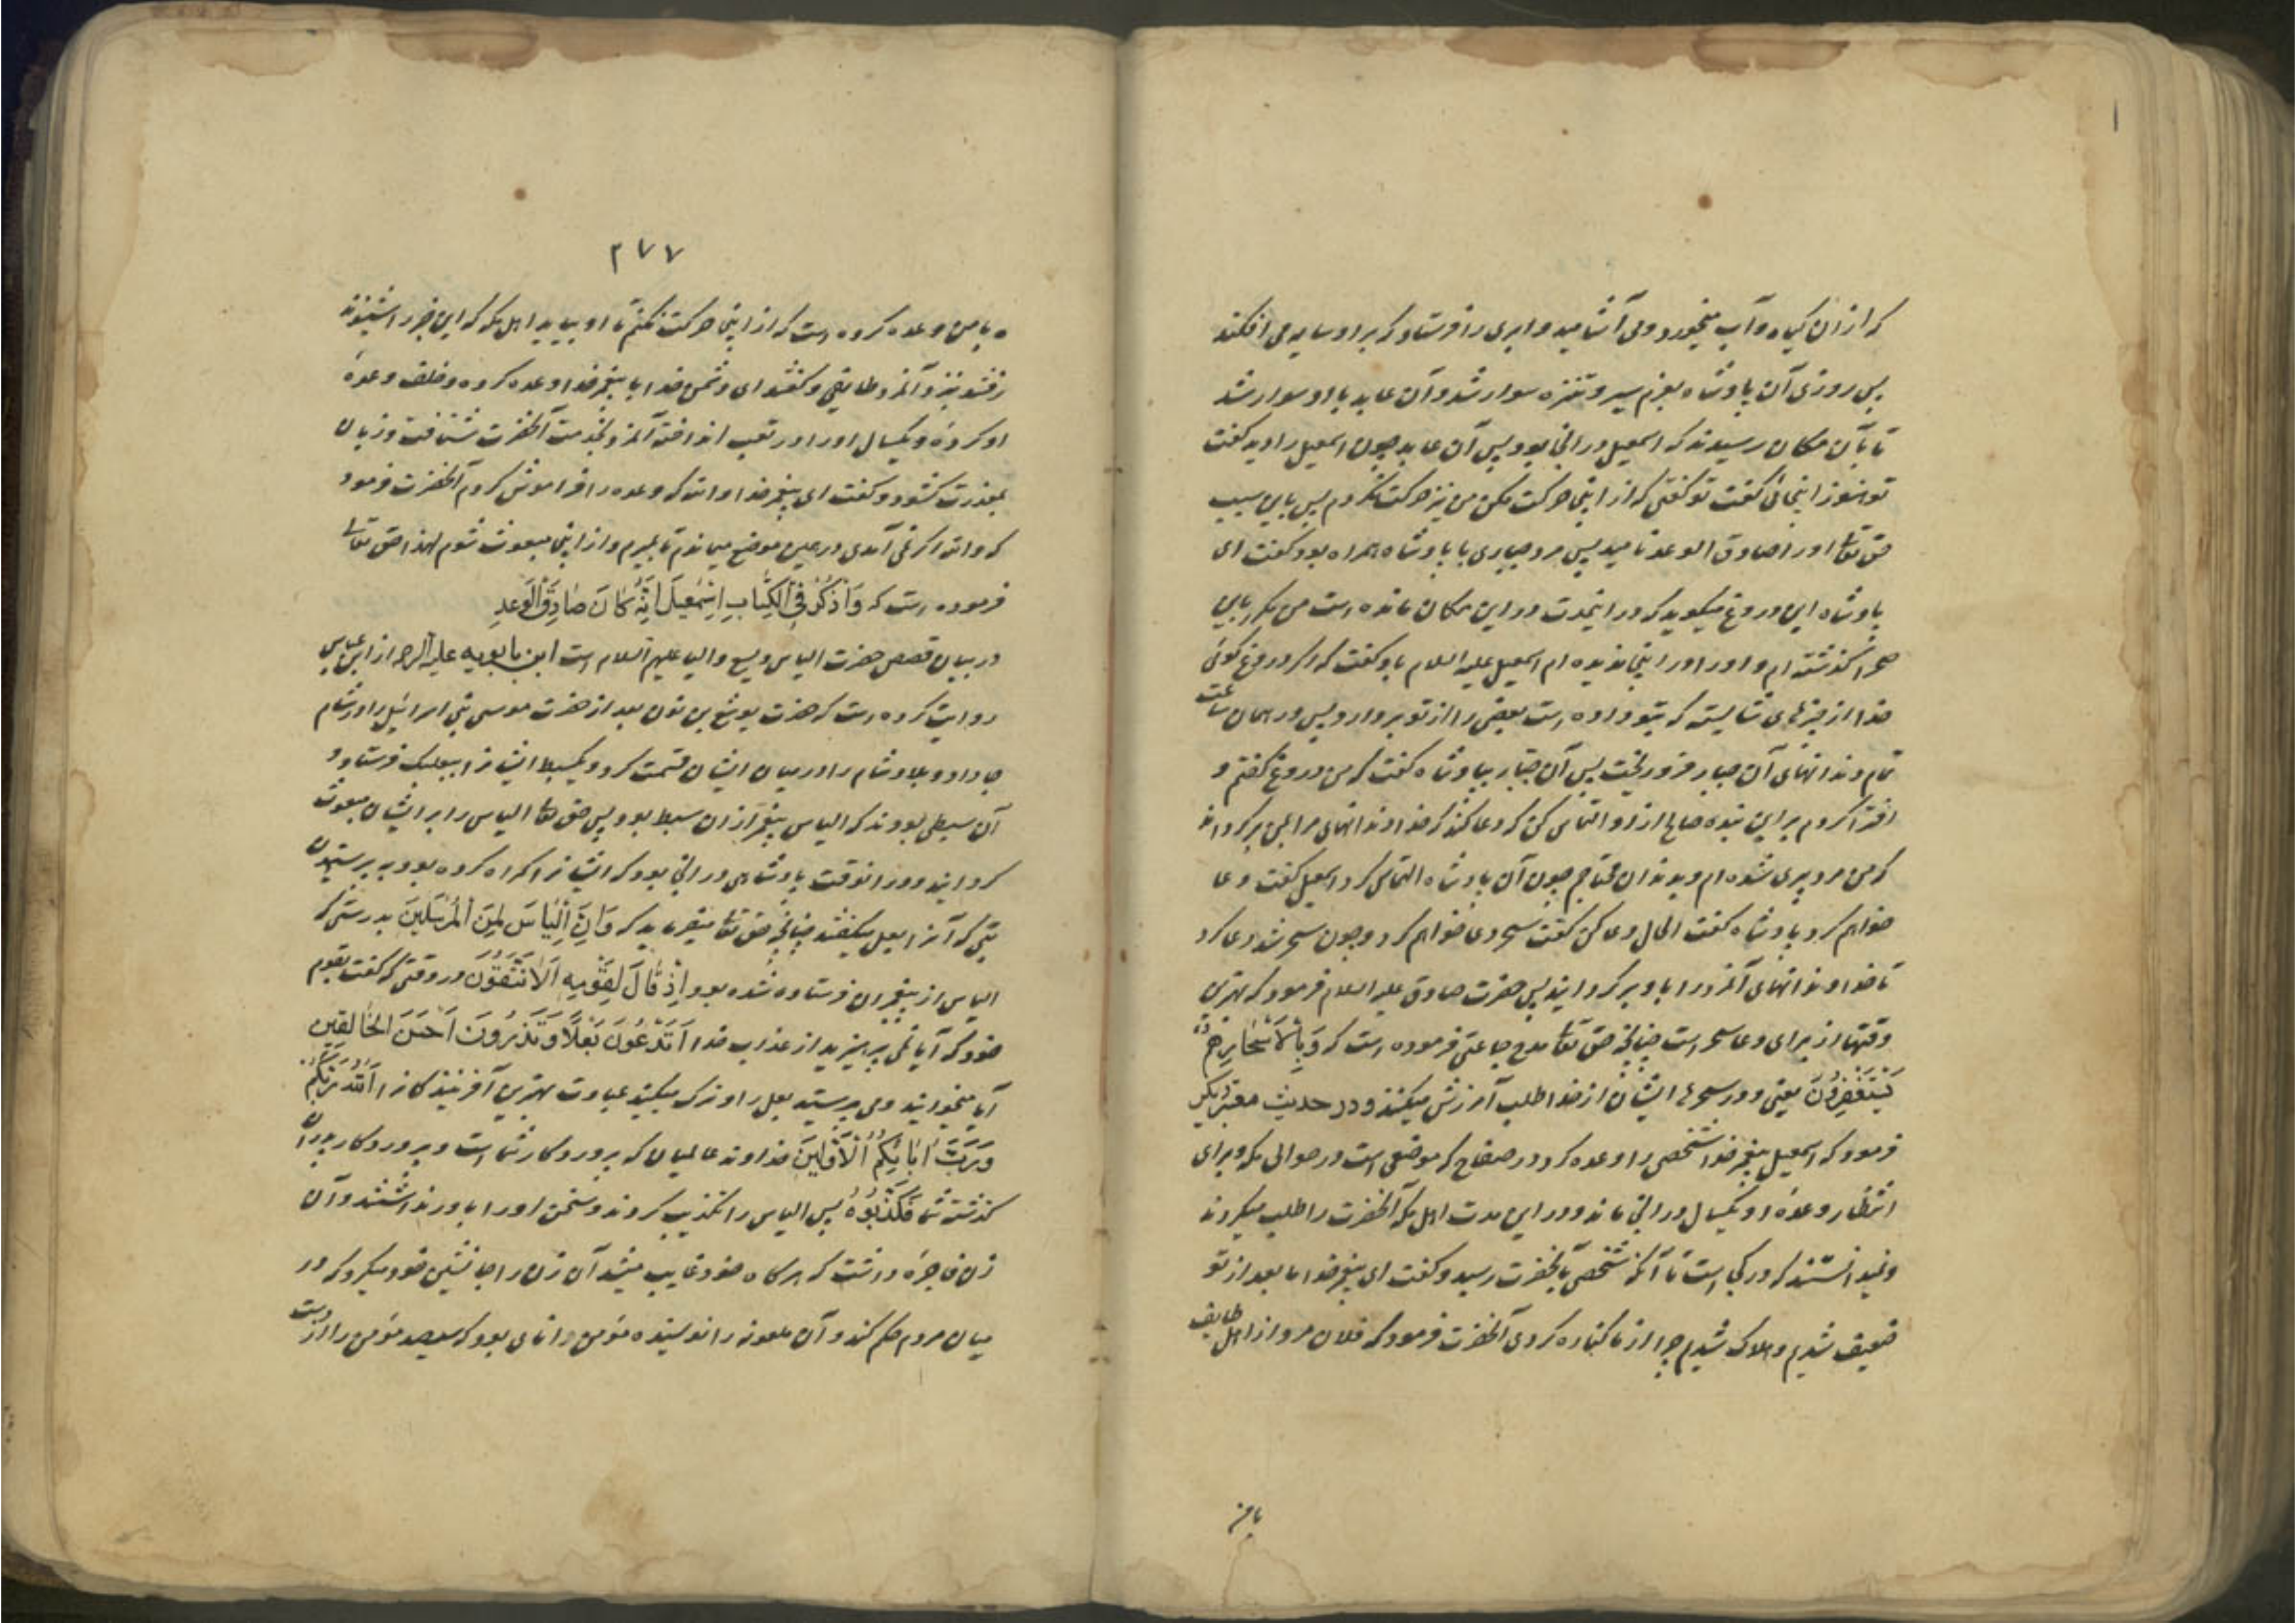 که از ان گیاه و آب میخورد و می آشامید و ابری را فرستاد که بر او سایه می افکند
پس روزی آن پادشاه بعزم سیر و تنزه سوار شد و آن عابد با او سوار شد
تا بآن مکان رسیدند که اسمعیل در انجا بود پس آن عابد چون اسمعیل را دید گفت
تو هنوز اینجائی گفت تو گفتی که از اینجا حرکت مکن من نیز حرکت نکردم پس باین سبب
حق تعالی او را صادق الوعد نامید پس مرد جباری با پادشاه همراه بود گفت ای
پادشاه این دروغ میگوید که در اینمدت در این مکان مانده است من مکرر باین
صحرا گذشته ام و او را در اینجا ندیده ام اسمعیل علیه السلام باو گفت که اگر دروغ گوئی
خدا از چیزهای شایسته که بتو داده است بعضی را از تو بردارد پس در همان ساعت
تمام دندانهای آن جبار فرو ریخت پس آن جبار بپادشاه گفت که من دروغ گفتم و
افترا کردم بر این بنده صالح از او التماس کن که دعا کند که خدا دندانهای مرا بمن برگرداند
که من مرد پیری شده ام و بدندان محتاجم چون آن پادشاه التماس کرد اسمعیل گفت دعا
خواهم کرد پادشاه گفت الحال دعا کن گفت سحر دعا خواهم کرد و چون سحر شد دعا کرد
تا خدا دندانهای آنمرد را باو برگردانید پس حضرت صادق علیه السلام فرمود که بهترین
وقتها از برای دعا سحر است چنانچه حق تعالی مدح جماعتی فرموده است که وَبِالْاَسْحَارِ هُمْ
یَسْتَغْفِرُونَ یعنی و در سحرها ایشان از خدا طلب آمرزش میکنند و در حدیث معتبر دیگر
فرمود که اسمعیل پیغمبر خدا شخصی را وعده کرد در صفاح که موضعی است در حوالی مکه و برای
انتظار وعدهٔ او یکسال در انجا ماند و در این مدت اهل مکه آنحضرت را طلب میکردند
و نمیدانستند که در کجا است تا آنکه شخصی بآنحضرت رسید و گفت ای پیغمبر خدا ما بعد از تو
ضعیف شدیم و هلاک شدیم چرا از ما کناره کردی آنحضرت فرمود که فلان مرد از اهل طایف
بامن
۲۷۷
ه بامن وعده کرده است که از اینجا حرکت نکنم تا او بیاید اهل مکه که این خبر را شنیدند
رفتند بنزد آنمرد طایفی و گفتند ای دشمن خدا با پیغمبر خدا وعده کرده و خلف وعدهٔ
او کردهٔ و یکسال او را در تعب انداختهٔ آنمرد بخدمت آنحضرت شتافت و زبان
بمعذرت گشود و گفت ای پیغمبر خدا والله که وعده را فراموش کردم آنحضرت فرمود
که والله اگر نمی آمدی در همین موضع میماندم تا بمیرم و از اینجا مبعوث شوم لهذا حق تعالی
فرموده است که وَاذْکُرْ فِی الْکِتَابِ اِسْمٰعِیلَ اِنَّهُ کَانَ صَادِقَ الْوَعْدِ
در بیان قصص حضرت الیاس و یسع و الیا علیهم السلام است ابن بابویه علیه الرحمه از ابن عباس
روایت کرده است که حضرت یوشع بن نون بعد از حضرت موسی بنی اسرائیل را در شام
جا داد و بلاد شام را در میان ایشان قسمت کرد و یکسبط ایشانرا ببعلبک فرستاد و
آن سبطی بودند که الیاس پیغمبر از ان سبط بود پس حق تعالی الیاس را بر ایشان مبعوث
گردانید و در انوقت پادشاهی در انجا بود که ایشانرا گمراه کرده بود به پرستیدن
بتی که آنرا بعل میگفتند چنانچه حق تعالی میفرماید که وَاِنَّ اِلْیَاسَ لَمِنَ الْمُرْسَلِینَ بدرستی که
الیاس از پیغمبران فرستاده شده بود اِذْ قَالَ لِقَوْمِهِ اَلَا تَتَّقُونَ در وقتی که گفت بقوم
خود که آیا نمی پرهیزید از عذاب خدا اَتَدْعُونَ بَعْلًا وَتَذَرُونَ اَحْسَنَ الْخَالِقِینَ
آیا میخوانید و می پرستید بعل را و ترک میکنید عبادت بهترین آفرینندکانرا اَللّٰهَ رَبَّکُمْ
وَرَبَّ اٰبَائِکُمُ الْاَوَّلِینَ خداوند عالمیان که پروردگار شما است و پروردگار پدران
گذشته شما فَکَذَّبُوهُ پس الیاس را تکذیب کردند و سخن او را باور نداشتند و آن
زن فاجرهٔ داشت که هرگاه خود غایب میشد آن زن را جانشین خود میکرد که در
میان مردم حکم کند و آن ملعونه را نویسنده مؤمن دانای بود که سیصد مؤمن را از دست